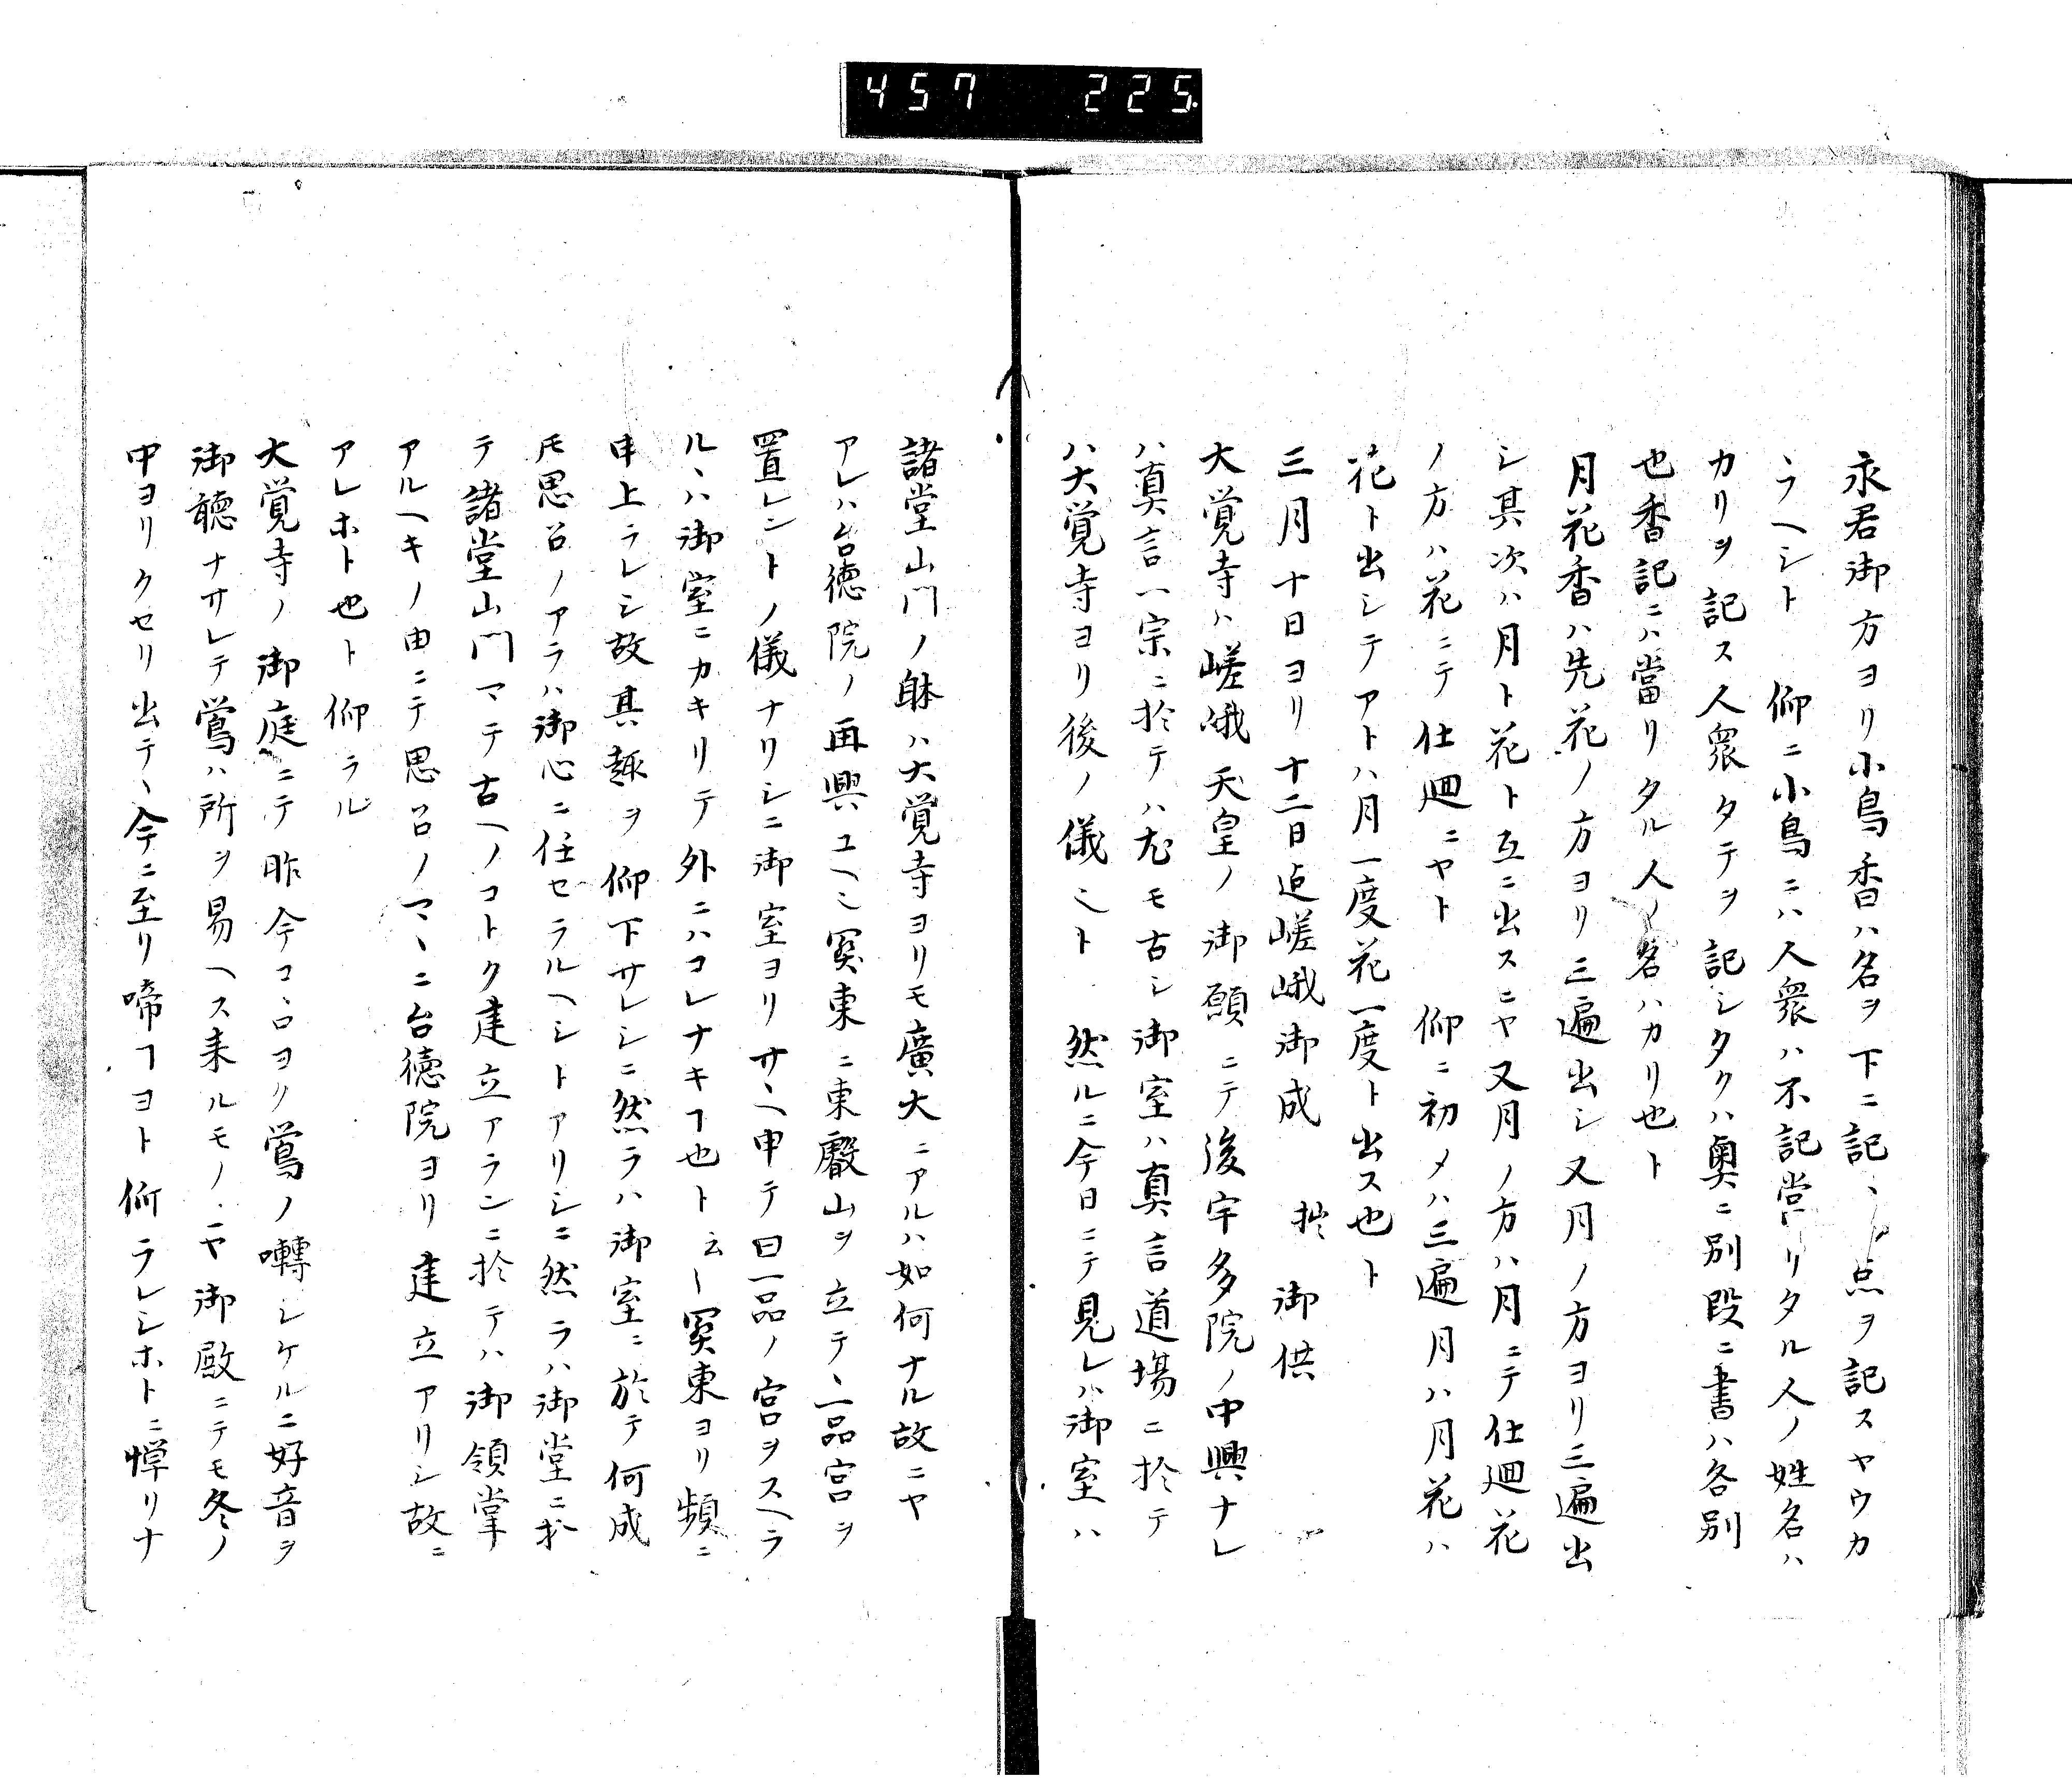 457 225
永君御方ヨリ小鳥香ハ名ヲ下ニ記、点ヲ記スヤウカ
、ラヘシト　仰ニ小鳥ニハ人衆ハ不記當リタル人ノ姓名ハ
カリヲ記ス人衆タテヲ記シタクハ奥ニ別段ニ書ハ各別
也香記ニハ當リタル人ノ名ハカリ也ト
月花香ハ先花ノ方ヨリ三遍出シ又月ノ方ヨリ三遍出
シ其次ハ月ト花ト互ニ出スニヤ又月ノ方ハ月ニテ仕廻花
ノ方ハ花ニテ仕廻ニヤト　仰ニ初メハ三遍月ハ月花ハ
花ト出シテアトハ月一度花一度ト出ス也ト
三月十日ヨリ十二日迠嵯峨御成　拙　御供
大覚寺ハ嵯峨天皇ノ御願ニテ後宇多院ノ中興ナレ
ハ真言一宗ニ於テハ尤モ古シ御室ハ真言道場ニ於テ
ハ大覚寺ヨリ後ノ儀也ト　然ルニ今日ニテ見レハ御室ハ
諸堂山門ノ躰ハ大覚寺ヨリモ廣大ニアルハ如何ナル故ニヤ
アレハ台徳院ノ再興ユヘ也関東ニ東叡山ヲ立テ、一品宮ヲ
置レントノ儀ナリシニ御室ヨリサ、ヘ申テ曰一品ノ宮ヲスヘラ
ル、ハ御室ニカキリテ外ニハコレナキヿ也ト云〻関東ヨリ頻ニ
申上ラレシ故其趣ヲ仰下サレシニ然ラハ御室ニ於テ何成
トモ思召ノアラハ御心ニ任セラルヘシトアリシニ然ラハ御堂ニ於
テ諸堂山門マテ古ヘノコトク建立アランニ於テハ御領掌
アルヘキノ由ニテ思召ノマヽニ台徳院ヨリ建立アリシ故ニ
アレホト也ト仰ラル
大覚寺ノ御庭ニテ昨今コヽロヨク鶯ノ囀シケルニ好音ヲ
御聴ナサレテ鶯ハ所ヲ易ヘス来ルモノニヤ御殿ニテモ冬ノ
中ヨリクセリ出テ、今ニ至リ啼ヿヨト仰ラレシホトニ憚リナ